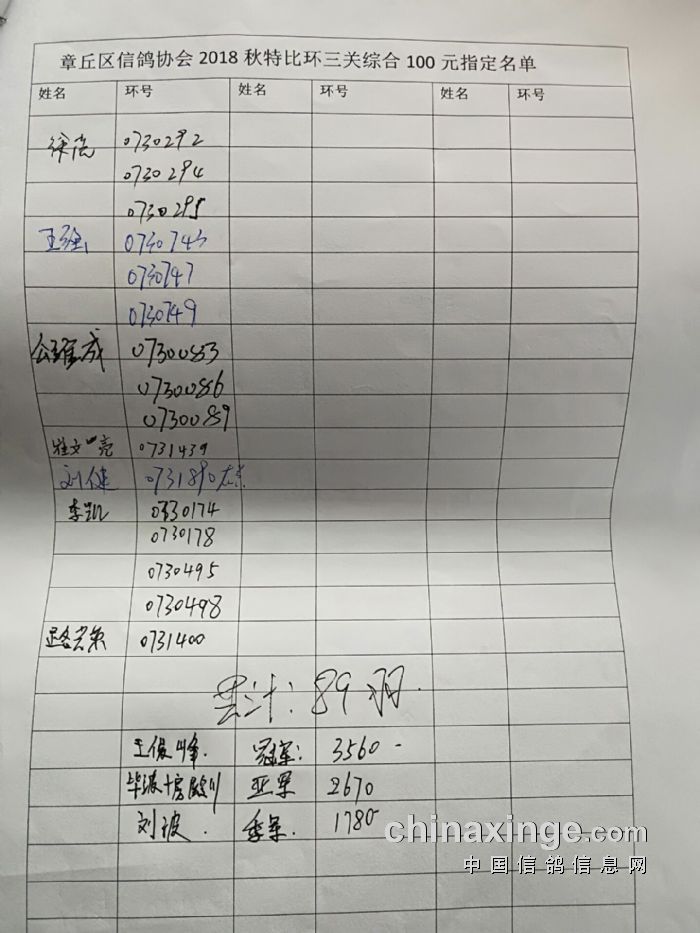 章丘区信鸽协会2018秋特比环三关综合100元指定名单
姓名 环号 姓名 环号 姓名 环号
0730292
0730294
0730295
王强 0730743
0730747
0730749
公维成 0730083
0730086
0730089
崔文亮 0731439
刘健
李凯 0730174
0730178
0730495
0730498
路荣 0731400
累计:89羽.
王俊峰. 冠军: 3560-
亚军 2670
刘波. 季军. 1780
chinaxinge.com
中国信鸽信息网